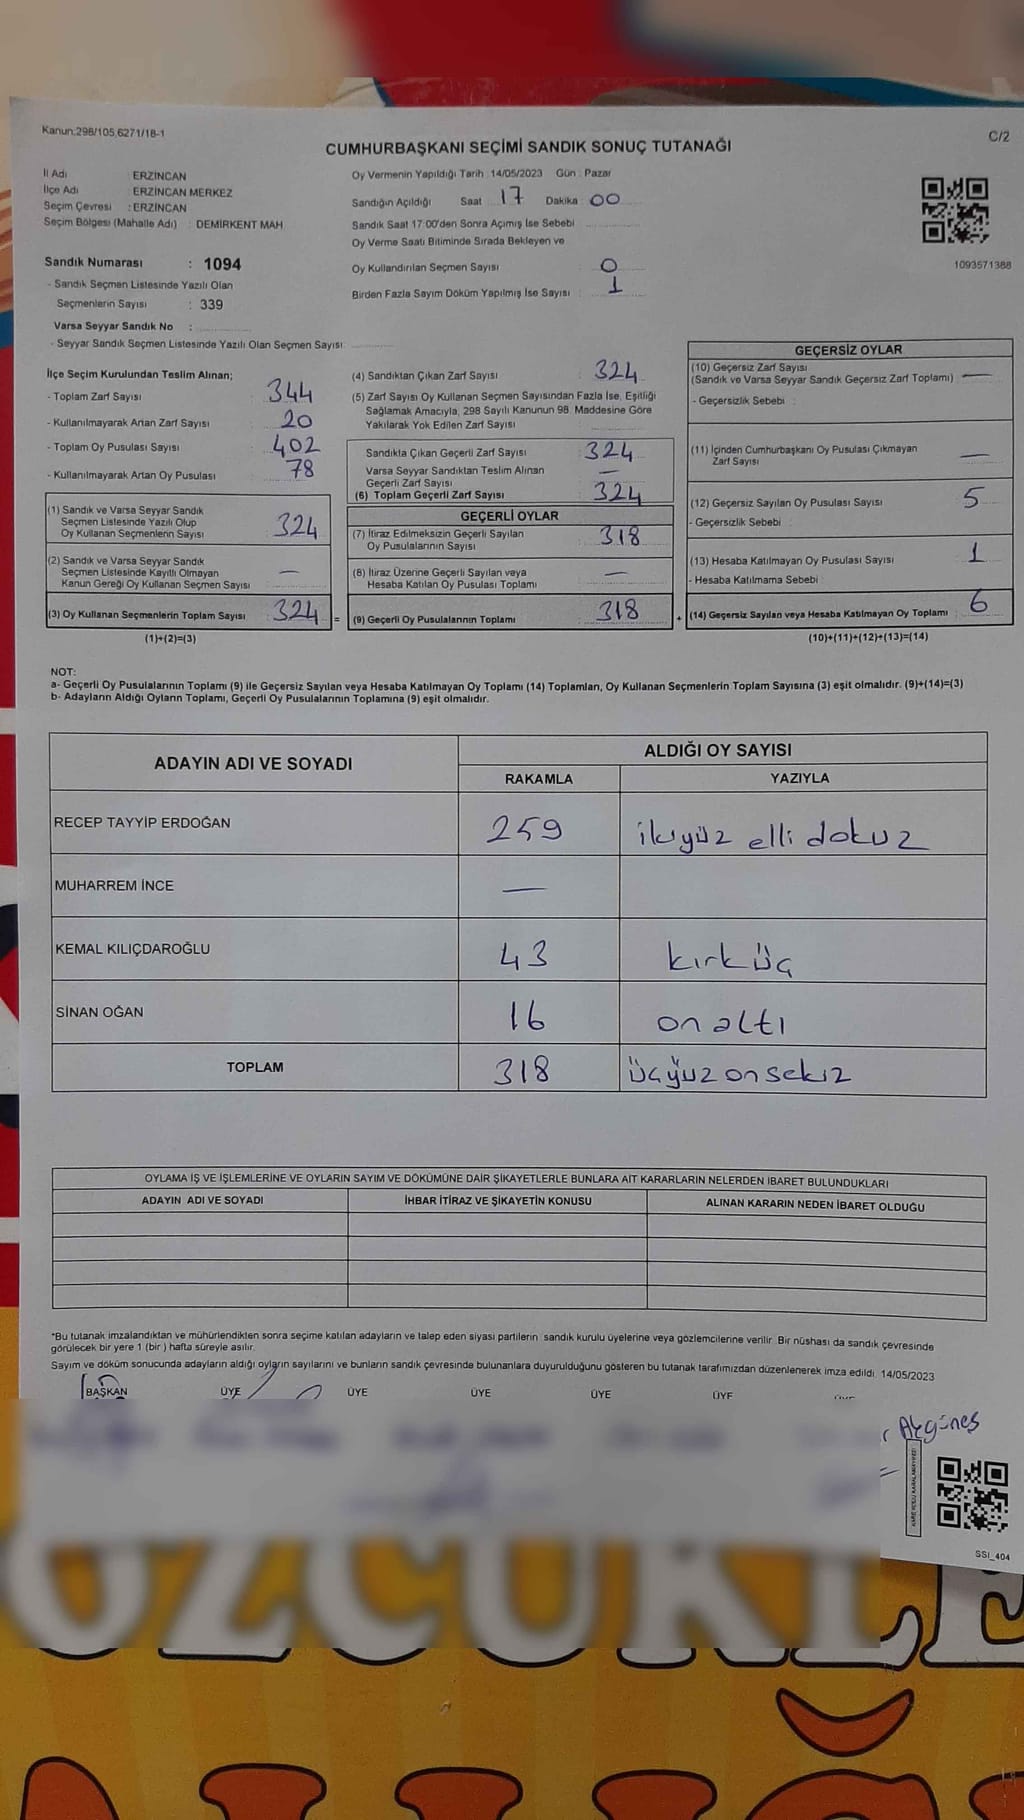 Kanun:298/105,6271/18-1
C/2
CUMHURBAŞKANI SEÇİMİ SANDIK SONUÇ TUTANAĞI
İl Adı : ERZİNCAN
İlçe Adı : ERZİNCAN MERKEZ
Seçim Çevresi : ERZİNCAN
Seçim Bölgesi (Mahalle Adı) : DEMİRKENT MAH
Sandık Numarası : 1094
- Sandık Seçmen Listesinde Yazılı Olan
Seçmenlerin Sayısı : 339
Varsa Seyyar Sandık No :
- Seyyar Sandık Seçmen Listesinde Yazılı Olan Seçmen Sayısı:
Oy Vermenin Yapıldığı Tarih : 14/05/2023 Gün : Pazar
Sandığın Açıldığı Saat 17 Dakika : 00
Sandık Saat 17:00'den Sonra Açımış İse Sebebi
Oy Verme Saati Bitiminde Sırada Bekleyen ve
Oy Kullandırılan Seçmen Sayısı : 0
Birden Fazla Sayım Döküm Yapılmış İse Sayısı : 1
1093571388
İlçe Seçim Kurulundan Teslim Alınan;
- Toplam Zarf Sayısı : 344
- Kullanılmayarak Artan Zarf Sayısı : 20
- Toplam Oy Pusulası Sayısı : 402
- Kullanılmayarak Artan Oy Pusulası : 78
(1) Sandık ve Varsa Seyyar Sandık
Seçmen Listesinde Yazılı Olup
Oy Kullanan Seçmenlerin Sayısı : 324
(2) Sandık ve Varsa Seyyar Sandık
Seçmen Listesinde Kayıtlı Olmayan
Kanun Gereği Oy Kullanan Seçmen Sayısı : —
(3) Oy Kullanan Seçmenlerin Toplam Sayısı : 324 =
(1)+(2)=(3)
(4) Sandıktan Çıkan Zarf Sayısı : 324
(5) Zarf Sayısı Oy Kullanan Seçmen Sayısından Fazla İse, Eşitliği
Sağlamak Amacıyla, 298 Sayılı Kanunun 98. Maddesine Göre
Yakılarak Yok Edilen Zarf Sayısı
Sandıkta Çıkan Geçerli Zarf Sayısı : 324
Varsa Seyyar Sandıktan Teslim Alınan
Geçerli Zarf Sayısı —
(6) Toplam Geçerli Zarf Sayısı : 324
GEÇERLİ OYLAR
(7) İtiraz Edilmeksizin Geçerli Sayılan
Oy Pusulalarının Sayısı : 318
(8) İtiraz Üzerine Geçerli Sayılan veya
Hesaba Katılan Oy Pusulası Toplamı : —
(9) Geçerli Oy Pusulalarının Toplamı : 318 +
GEÇERSİZ OYLAR
(10) Geçersiz Zarf Sayısı
(Sandık ve Varsa Seyyar Sandık Geçersiz Zarf Toplamı) : —
- Geçersizlik Sebebi :
(11) İçinden Cumhurbaşkanı Oy Pusulası Çıkmayan
Zarf Sayısı —
(12) Geçersiz Sayılan Oy Pusulası Sayısı : 5
- Geçersizlik Sebebi :
(13) Hesaba Katılmayan Oy Pusulası Sayısı : 1
- Hesaba Katılmama Sebebi :
(14) Geçersiz Sayılan veya Hesaba Katılmayan Oy Toplamı : 6
(10)+(11)+(12)+(13)=(14)
NOT:
a- Geçerli Oy Pusulalarının Toplamı (9) ile Geçersiz Sayılan veya Hesaba Katılmayan Oy Toplamı (14) Toplamları, Oy Kullanan Seçmenlerin Toplam Sayısına (3) eşit olmalıdır. (9)+(14)=(3)
b- Adayların Aldığı Oyların Toplamı, Geçerli Oy Pusulalarının Toplamına (9) eşit olmalıdır.
ADAYIN ADI VE SOYADI ALDIĞI OY SAYISI
RAKAMLA YAZIYLA
RECEP TAYYİP ERDOĞAN 259 ikiyüz elli dokuz
MUHARREM İNCE —
KEMAL KILIÇDAROĞLU 43 kırküç
SİNAN OĞAN 16 on altı
TOPLAM 318 üçyüz on sekiz
OYLAMA İŞ VE İŞLEMLERİNE VE OYLARIN SAYIM VE DÖKÜMÜNE DAİR ŞİKAYETLERLE BUNLARA AİT KARARLARIN NELERDEN İBARET BULUNDUKLARI
ADAYIN ADI VE SOYADI İHBAR İTİRAZ VE ŞİKAYETİN KONUSU ALINAN KARARIN NEDEN İBARET OLDUĞU
*Bu tutanak imzalandıktan ve mühürlendikten sonra seçime katılan adayların ve talep eden siyasi partilerin sandık kurulu üyelerine veya gözlemcilerine verilir. Bir nüshası da sandık çevresinde
görülecek bir yere 1 (bir) hafta süreyle asılır.
Sayım ve döküm sonucunda adayların aldığı oyların sayılarını ve bunların sandık çevresinde bulunanlara duyurulduğunu gösteren bu tutanak tarafımızdan düzenlenerek imza edildi. 14/05/2023
BAŞKAN ÜYE ÜYE ÜYE ÜYE ÜYE
Akgüneş
SSI_404